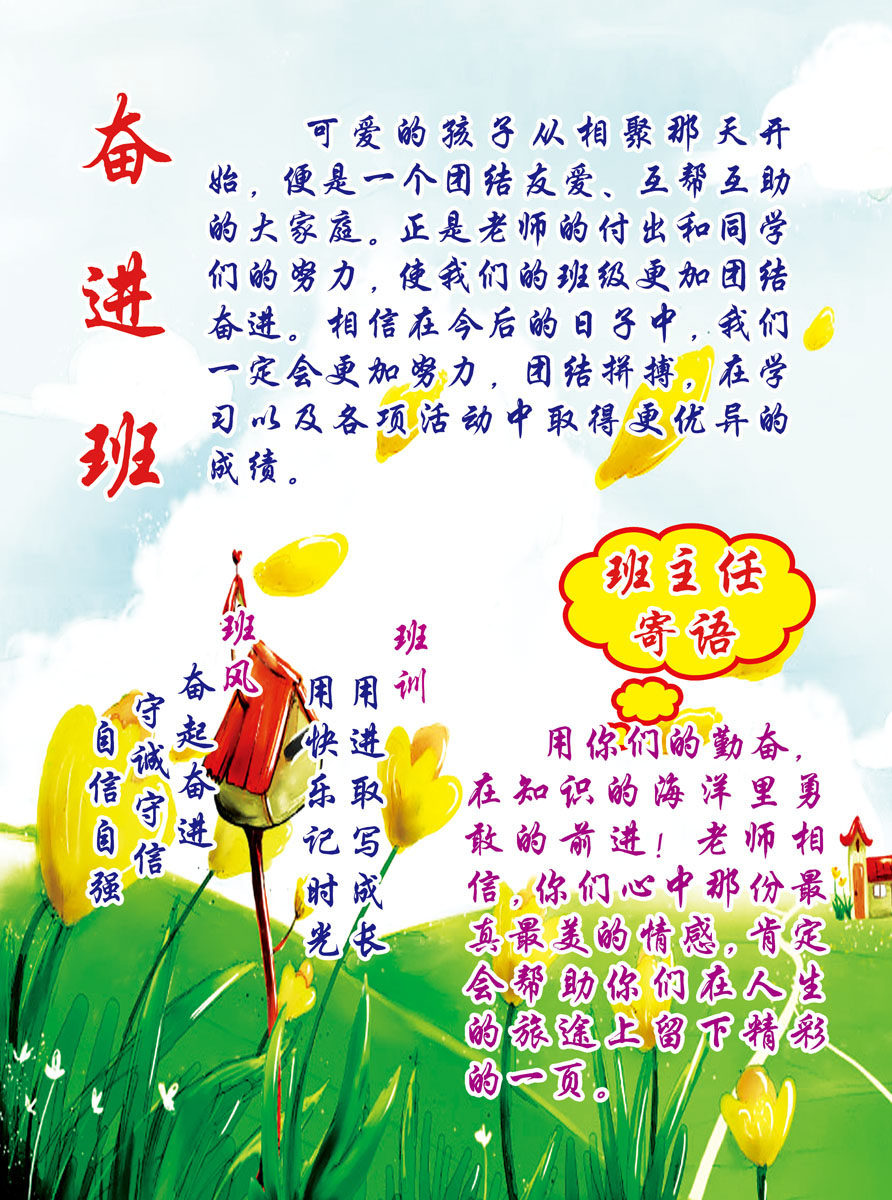 奋进班
可爱的孩子从相聚那天开
始，便是一个团结友爱、互帮互助
的大家庭。正是老师的付出和同学
们的努力，使我们的班级更加团结
奋进。相信在今后的日子中，我们
一定会更加努力，团结拼搏，在学
习以及各项活动中取得更优异的
成绩。
班训
用进取写成长
用快乐记时光
班风
奋起奋进
守诚守信
自信自强
班主任
寄语
用你们的勤奋，
在知识的海洋里勇
敢的前进！老师相
信，你们心中那份最
真最美的情感，肯定
会帮助你们在人生
的旅途上留下精彩
的一页。